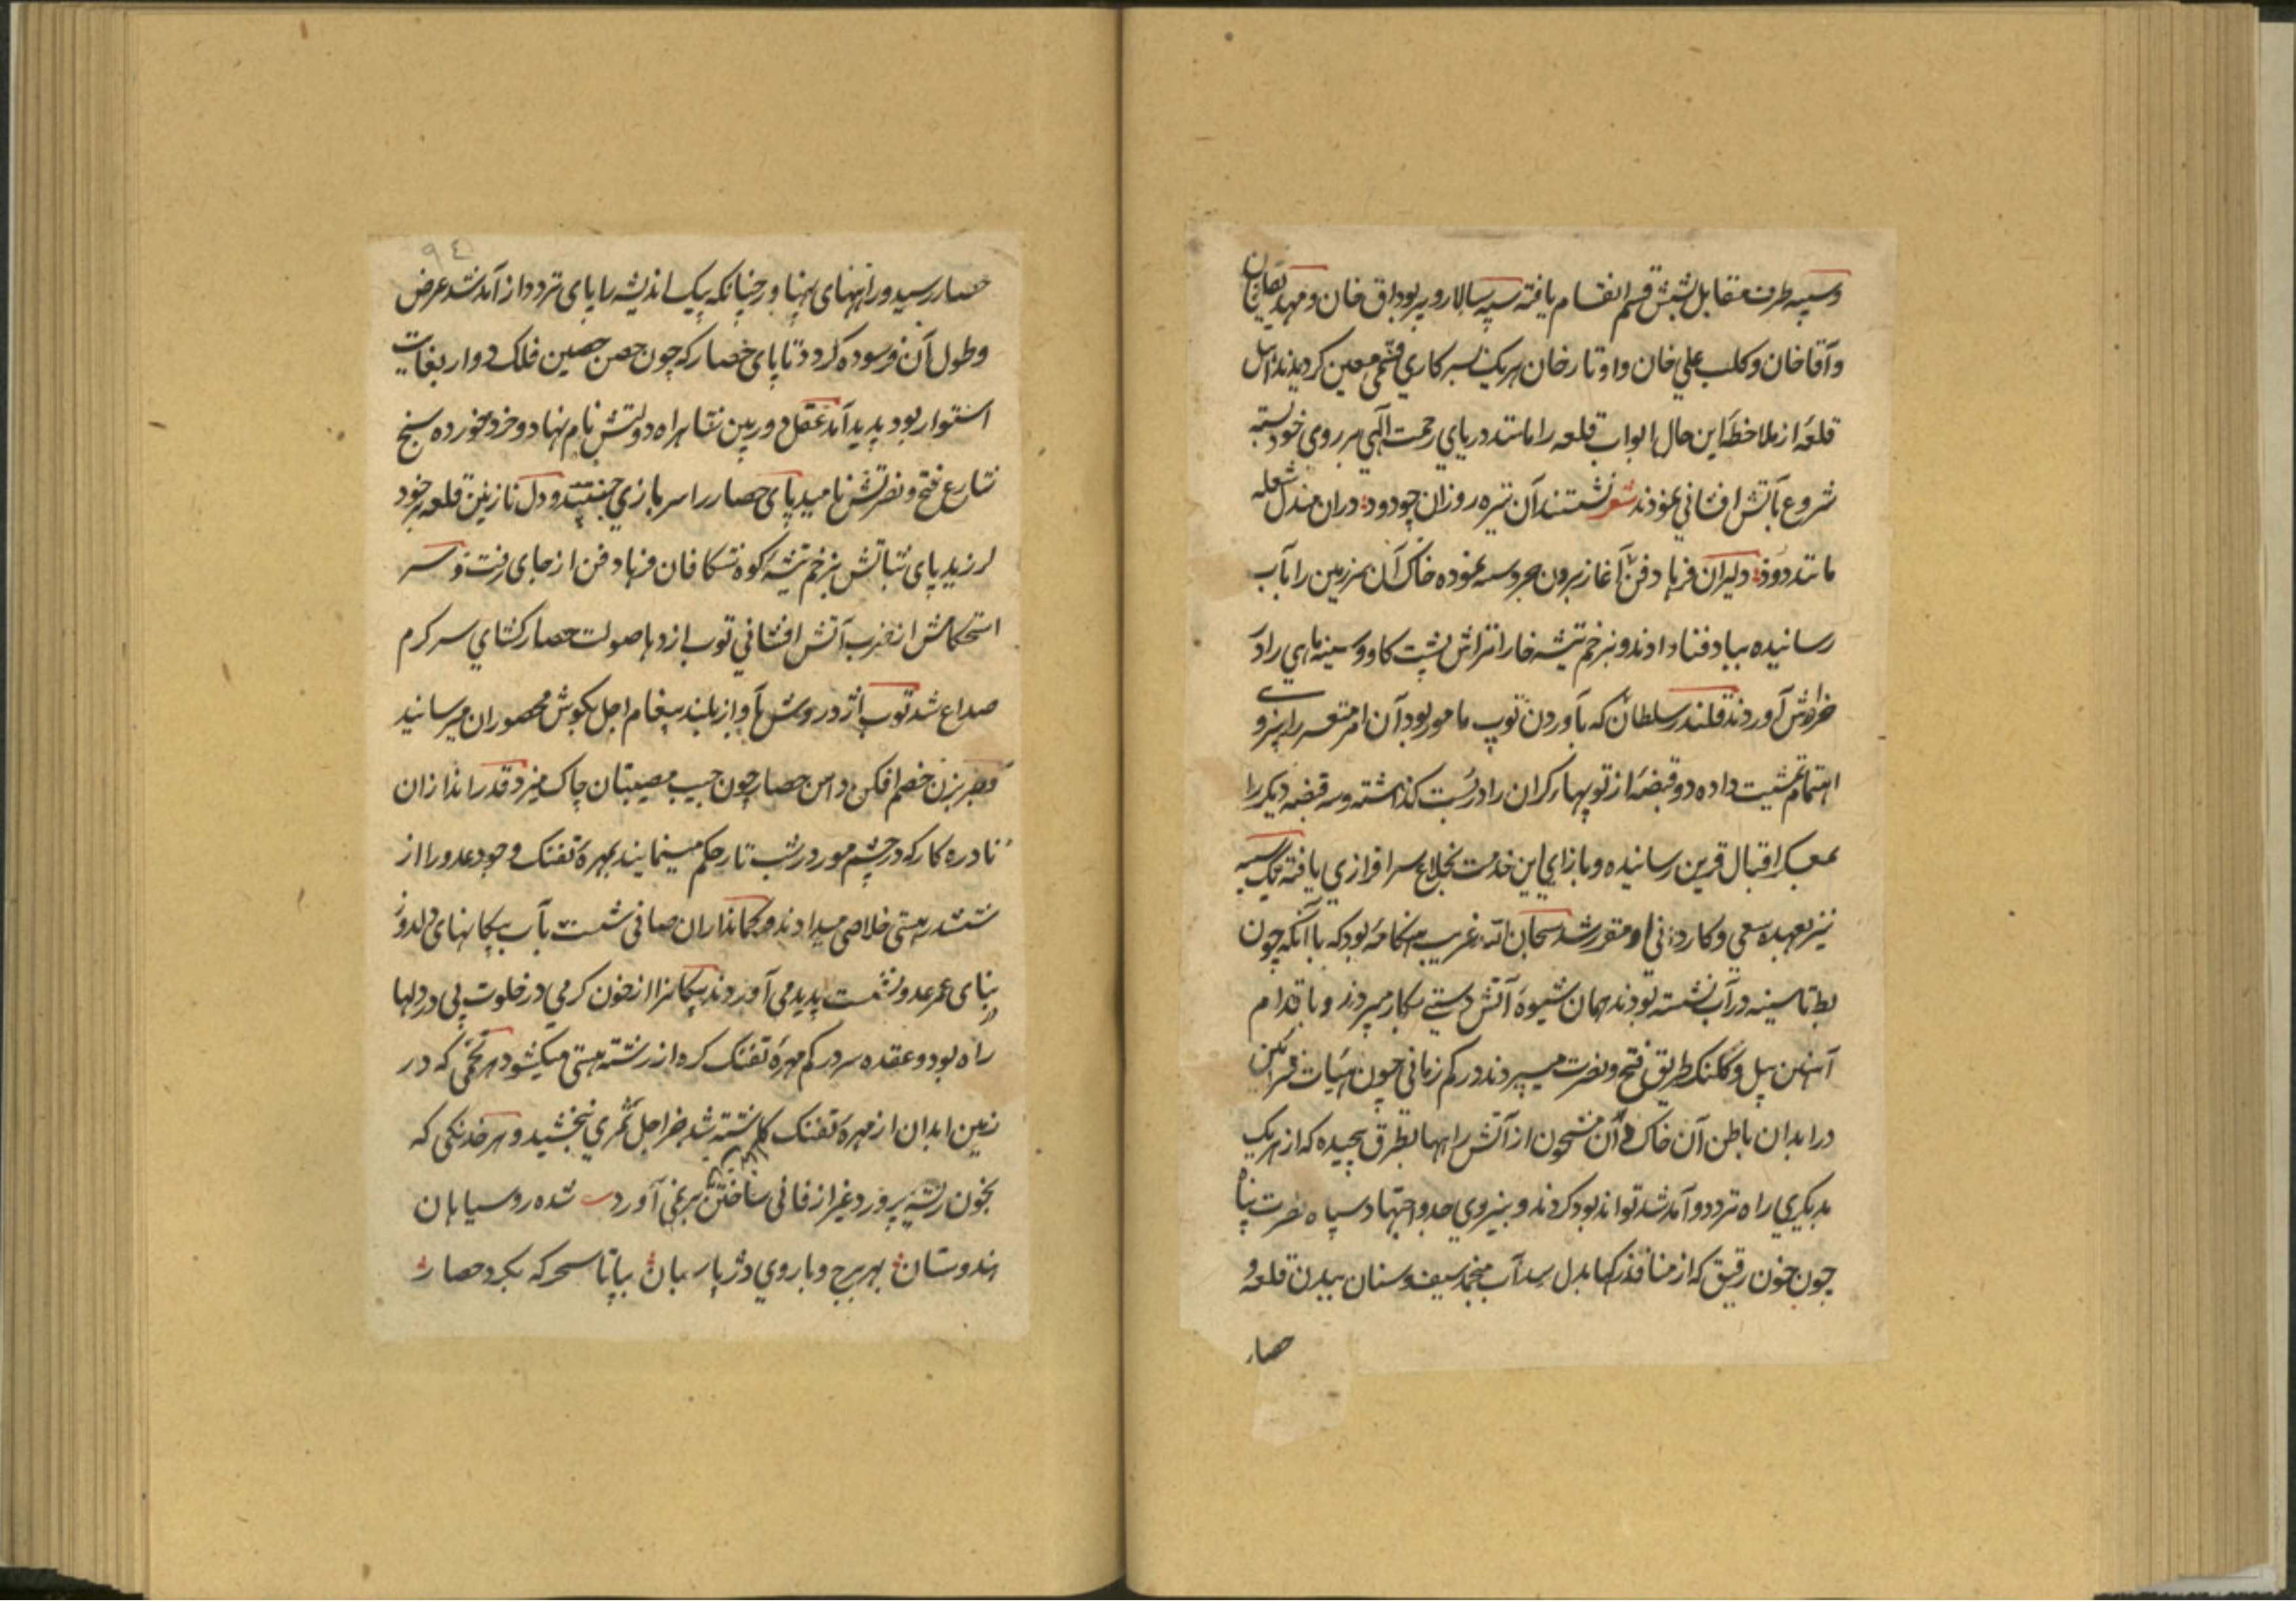 وسیبه طرف مقابل بشش قسم انقسام یافته سپه سالار و پیر بوداق خان و مهدیقلیخان
و آقا خان و کلب علی خان و اوتار خان هریک بسرکاری قسمی معین کردیدند اهل
قلعه از ملاحظه این حال ابواب قلعه را مانند دریای رحمت الهی بر روی خود بسته
شروع بآتش افشانی نمودند شعر نشستند آن تیره روزان چو دود دران مندل شعله
مانند دود دلیران فرهاد فن آغاز برون سیبه نموده خاک آن سرزمین را بآب
رسانیده بباد فنا دادند و بزخم تیشه خارا تراش پشت کاو و سینه ماهی را در
خراش آوردند قلندر سلطان که بآوردن توپ مامور بود آن امر متعسر را بنیروی
اهتمام تمشیت داده دو قبضه از توپهای کران را درست کذاشته و سه قبضه دیکر را
بمعسکر اقبال قرین رسانیده و بازای این خدمت بخلاع سرافرازی یافته یک سیبه
نیز بعهده سعی و کاردانی او مقرر شد سبحان الله غریب هنکامه بود که با آنکه چون
بط تا سینه در آب نشسته بودند همان شیوه آتش دستی بکار میبردند و باقدام
آهنین بیل و کلنک طریق فتح و نصرت میسپردند در کم زمانی چون
در ابدان باطن آن خاک مشحون از آتش راهها بطرق پیچیده که از هریک
بدیکری راه تردد و آمد شد تواند بود کردند و بنیروی جد و اجتهاد سپاه نصرت پناه
چون خون رقیق که از منافذ رکها بدل رسد آب منجمد سیف و سنان ببدن قلعه و
حصار
٩٤
حصار رسید و راههای پهناور چنانکه پیک اندیشه را پای تردد از آمد شد عرض
و طول آن فرسوده کردد تا پای حصار که چون حصن حصین فلک دوار بغایت
استوار بود پدید آمد عقل دوربین شاهراه دولتش نام نهاد و خرد خورده سنج
شارع فتح و نصرتش نامید پای حصار را سر بازی جنبید و دل نازنین قلعه بر خود
لرزید پای ثباتش بزخم تیشه کوه شکافان فرهاد فن از جای رفت و سر
استحکامش از ضرب آتش افشانی توپ اژدها صولت حصار کشای سرکرم
صداع شد توپ اژدر وش بآواز بلند پیغام اجل بکوش محصوران میرسانید
و ضربزن خصم افکن دامن حصار چون جیب مصیبتیان چاک میزد قدر اندازان
نادره کار که در چشم مور در شب تار حکم مینمایند بمهره تفنک وجود عدو را از
ششدر هستی خلاصی میدادند و کمانداران صافی شست بآب پیکانهای دلدوز
در بنای عمر عدو نشست پدید می آوردند پیکانرا از خون کرمی در خلوت پی در دلها
راه بود و عقده سر در کم مهره تفنک کره از رشته هستی میکشود هر تخمی که در
زمین ابدان از مهره تفنک کاشته شد جز اجل ثمری نبخشید و هر خدنکی که
بخون ریشه پرورد غیر از فانی ساختن بری آورد شده رو سیاهان
هندوستان بهر برج و باروی دژ پاسبان بیا تا سحر که بکرد حصار